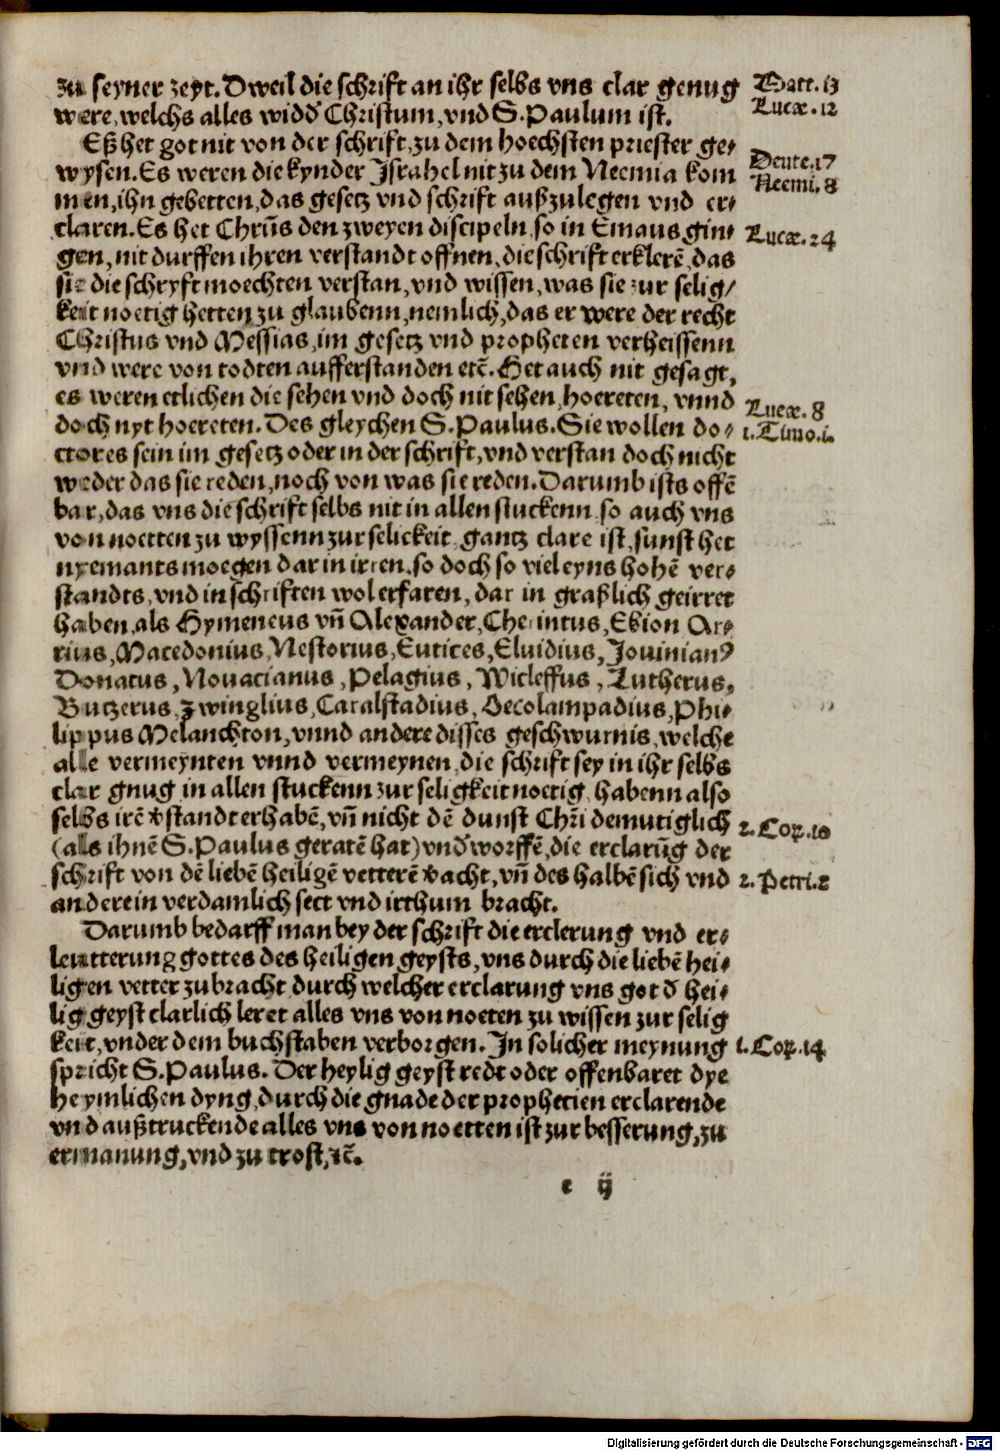 zu seyner zeyt. Dweil die schrift an ihr selbs vns clar genug
Matt. 13
were, welchs alles widď Christum, vnd S. Paulum ist.
Lucæ. 12
Eß het got nit von der schrift, zu dem hoechsten priester ge⸗
wysen. Es weren die kynder Israhel nit zu dem Neemia kom
Deute. 17
Neemi. 8
men, ihn gebetten, das gesetz vnd schrift außzulegen vnd er⸗
claren. Es het Chrūs den zweyen discipeln so in Emaus gin⸗
Lucæ. 24
gen, nit durffen ihren verstandt offnen, die schrift erklerē, das
sie die schryft moechten verstan, vnd wissen, was sie zur selig/
keit noetig hetten zu glaubenn, nemlich, das er were der recht
Christus vnd Messias, im gesetz vnd propheten verheissenn
vnd were von todten aufferstanden etc̄. Het auch nit gesagt,
es weren etlichen die sehen vnd doch nit sehen, hoereten, vnnd
Lucæ. 8
doch nyt hoereten. Des gleychen S. Paulus. Sie wollen do⸗
1. Timo. 1.
ctores sein im gesetz oder in der schrift, vnd verstan doch nicht
weder das sie reden, noch von was sie reden. Darumb ists offē
bar, das vns die schrift selbs nit in allen stuckenn so auch vns
von noetten zu wyssenn zur selickeit gantz clare ist, sunst het
nyemants moegen dar in irren, so doch so viel eyns hohē ver⸗
standts, vnd in schriften wol erfaren, dar in graßlich geirret
haben, als Hymeneus vn̄ Alexander, Cherintus, Ebion Ar⸗
rius, Macedonius, Nestorius, Eutices, Eluidius, Jouinianꝰ
Donatus, Nouacianus, Pelagius, Wicleffus, Lutherus,
Butzerus, Zwinglius, Caralstadius, Oecolampadius, Phi⸗
lippus Melanchton, vnnd andere disses geschwurnis, welche
alle vermeynten vnnd vermeynen, die schrift sey in ihr selbs
clar gnug in allen stuckenn zur seligkeit noetig, habenn also
selbs irē v̓standt erhabē, vn̄ nicht dē dunst Chr̄i demutiglich
2. Cor. 10
(als ihnē S. Paulus geratē hat) vnď worffē, die erclarūg der
schrift von dē liebē heiligē vetterē v̓acht, vn̄ des halbē sich vnd
2. Petri. 2
andere in verdamlich sect vnd irthum bracht.
Darumb bedarff man bey der schrift die erclerung vnd er⸗
leutterung gottes des heiligen geysts, vns durch die liebē hei⸗
ligen vetter zubracht durch welcher erclarung vns got ď hei⸗
lig geyst clarlich leret alles vns von noeten zu wissen zur selig
keit, vnder dem buchstaben verborgen. In solicher meynung
1. Cor. 14
spricht S. Paulus. Der heylig geyst redt oder offenbaret dye
heymlichen dyng, durch die gnade der prophecien erclarende
vnd außtruckende alles vns von noetten ist zur besserung, zu
ermanung, vnd zu trost, ꝛc̄.
e ij
Digitalisierung gefördert durch die Deutsche Forschungsgemeinschaft - DFG